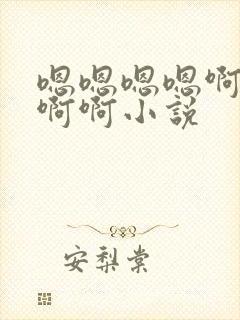 嗯嗯嗯嗯啊
啊啊小説
安梨棠